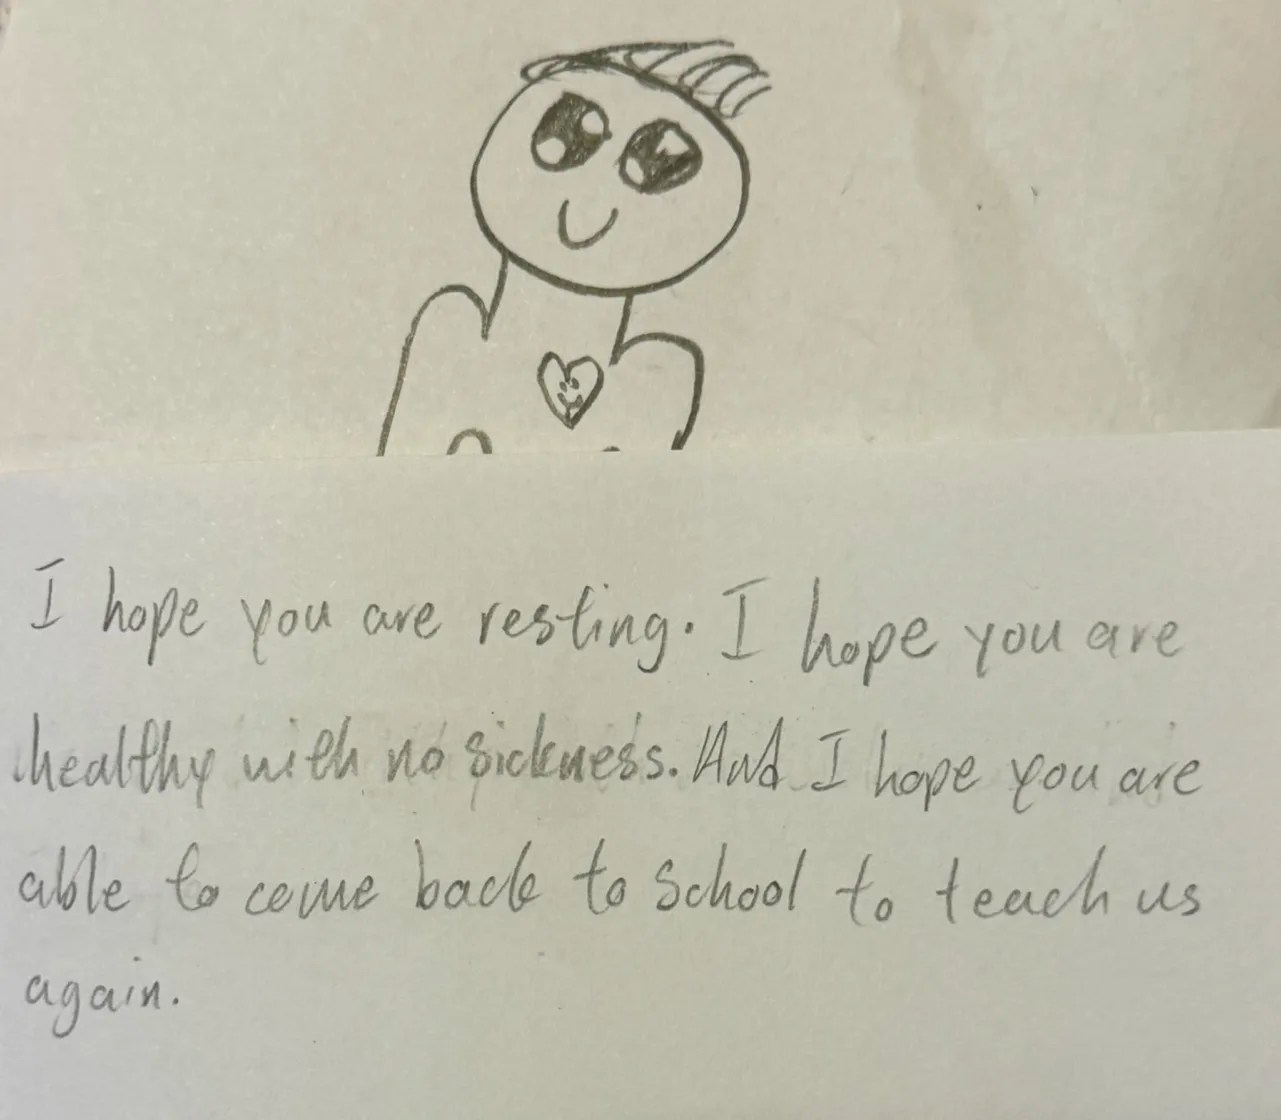 I hope you are resting. I hope you are
healthy with no sickness. And I hope you are
able to come back to school to teach us
again.